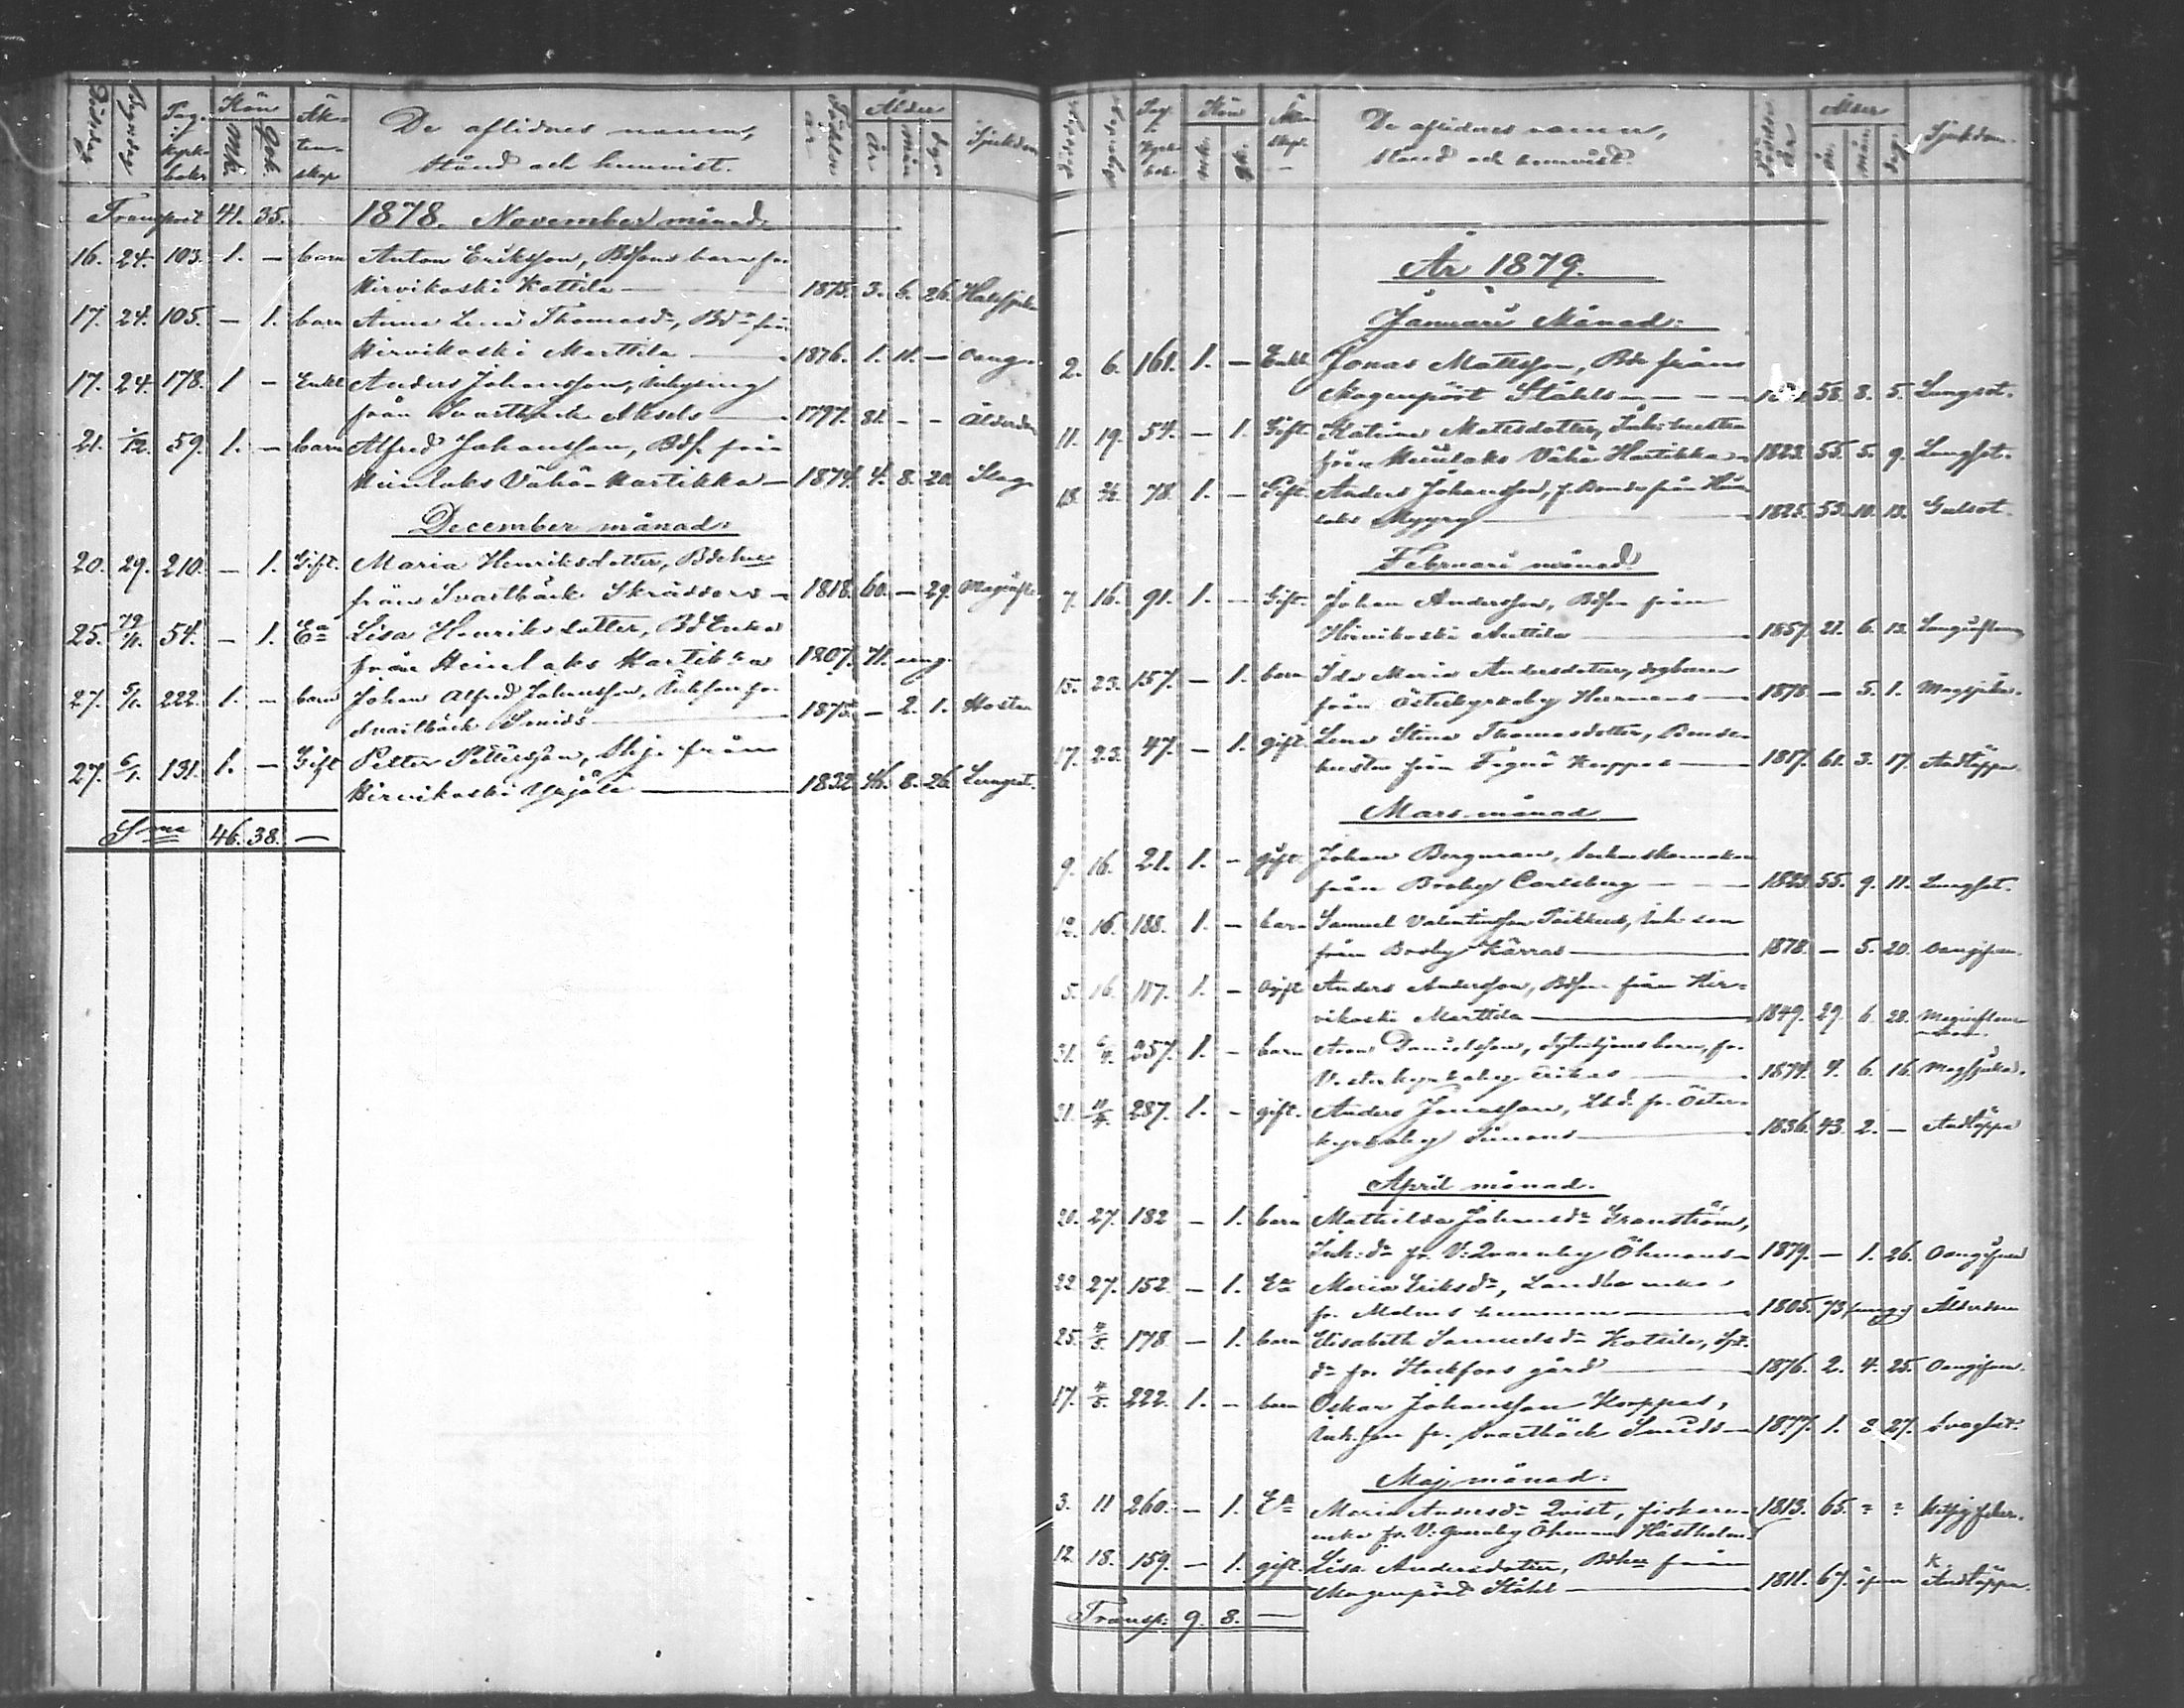 Dödsdag Begrdag Pag. i kyrk- boken Kön Mk. Qvk. Äk- ten- skap De aflidnes namn, Födelse år Ålder år mån dgr Sjukdom
stånd och hemvist.
Transport 41. 35. 1878. November månad.
16. 24. 103. 1. — barn Anton Eriksson, Bdsons barn fr.
Hirvikoski Kottila — 1875. 3. 6. 26. Halssjuka
17. 24. 105. — 1. barn Anna Lena Thomasdr, Bdr från
Hirvikoski Marttila — 1876. 1. 11. — Oang.
17. 24. 178. 1 — Enkl Anders Johansson, inhysing
från Svartbäck Aksels — 1797. 81. - - Ålderdom
21. 1/12. 59. 1. — barn Alfred Johansson, Bds. från
Heinlaks Vähä-Martikka — 1874. 4. 8. 20. Slag
December månad:
20. 29. 210. — 1. Gift. Maria Henriksdotter, Bdehu
från Svartbäck Skräddars — 1818. 60. — 29. Maginfl.
25. 79 1/1. 54. — 1. Ea Lisa Henriksdotter, BdEnka
från Heinlaks Martikka 1807. 71. ung.
27. 5/1. 222. 1. — barn Johan Alfred Johansson, Inhson fr.
Svartbäck Smids — 1875. — 2. 1. Hosta
27. 6/1. 131. 1. — Gift Petter Pettersson, Skjr från
Hirvikoski Yrjälä — 1832 46. 8. 26. Lungsot.
Sma 46. 38. —
Pag i kyrk- bok. Kön mk. qk. Äkten skap. De aflidnes namn, Födelse år Ålder år. mån. dag. Sjukdom.
stånd och hemvist.
År 1879.
Januari Månad:
2. 6. 161. 1. — Enkl Jonas Mattsson, Bde från
Mogenpört Ståhls — 58. 8. 5. Lungsot.
11. 19. 54. — 1. Gift Katrina Mattsdotter, Inh:hustru
från Heinlaks Vähä Martikka — 1823. 55. 5. 9. Lungsot.
18. 78. 1. — Gift Anders Johansson, f. Bonde från Hein
laks Myyry — 1825. 53. 10. 13. Gulsot.
Februari månad
7. 16. 91. 1. — Gift. Johan Andersson, Bdson från
Hirvikoski Anttila — 1857. 21. 6. 13. Lunginflamm
15. 23. 157. — 1. barn Ida Maria Andersdotter, dagbarn
från Österkyrkoby Hermans — 1878 — 5. 1. Magsjuka.
17. 23. 47. — 1. gift. Lena Stina Thomasdotter, Bonde-
hustru från Tegnö Kuppas — 1817. 61. 3. 17. Andtäppa.
Mars månad
9. 16. 21. 1. — gift. Johan Bergman,
från Broby Carlsberg — 1823. 55. 9. 11. Lungsot.
12. 16. 188. 1. — barn Samuel Valentinsson Poikkeus, Inh. son
från Broby Kärras — 1878. — 5. 20. Oangifven.
5. 16. 117. 1. — Ogift Anders Andersson, Bdson från Hir-
vikoski Marttila — 1849. 29. 6. 28. Maginflam-
31. 6/4. 257. 1. — barn Aron Danielsson, barn, fr.
Vesterkyrkoby Erikas — 1874. 4. 6. 16. Magsjuka.
31. 287. 1. — gift. Anders Jonasson, Lbd. fr. Öster-
kyrkoby Simons — 1836. 43. 2. — Andtäppa
April månad.
20. 27. 182 — 1. barn Mathilda Johansdr Granström,
Inh:dr fr. V:Qvarnby Öhmans — 1879. — 1. 26. Oangifven
22. 27. 152. — 1. Ea Maria Eriksdr, Landbo enka
fr. Malms hemman — 1805. 73 (ung.) Ålderdom
25. 4/5. 178 — 1. barn Elisabeth Samuelsdr Kottila,
dr fr. Stockfors gård — 1876. 2. 4. 25. Oangifven.
17. 4/5. 222. 1. — barn Oskar Johansson Hoppas,
Inh.son fr. Svartbäck Smids — 1877. 1. 8 27. Svaghet.
Maj månad:
3. 11 260. — 1. Ea Maria Andersdr Qvist, fiskare- 1813. 65. - - feber.
enka fr. V: Qvarnby Öhmans Hästholm.
12. 18. 159. — 1. gift. Lisa Andersdotter, Bdhu från
Mogenpört Ståhl — 1811. 67. Andtäppa.
Transp: 9. 8. —